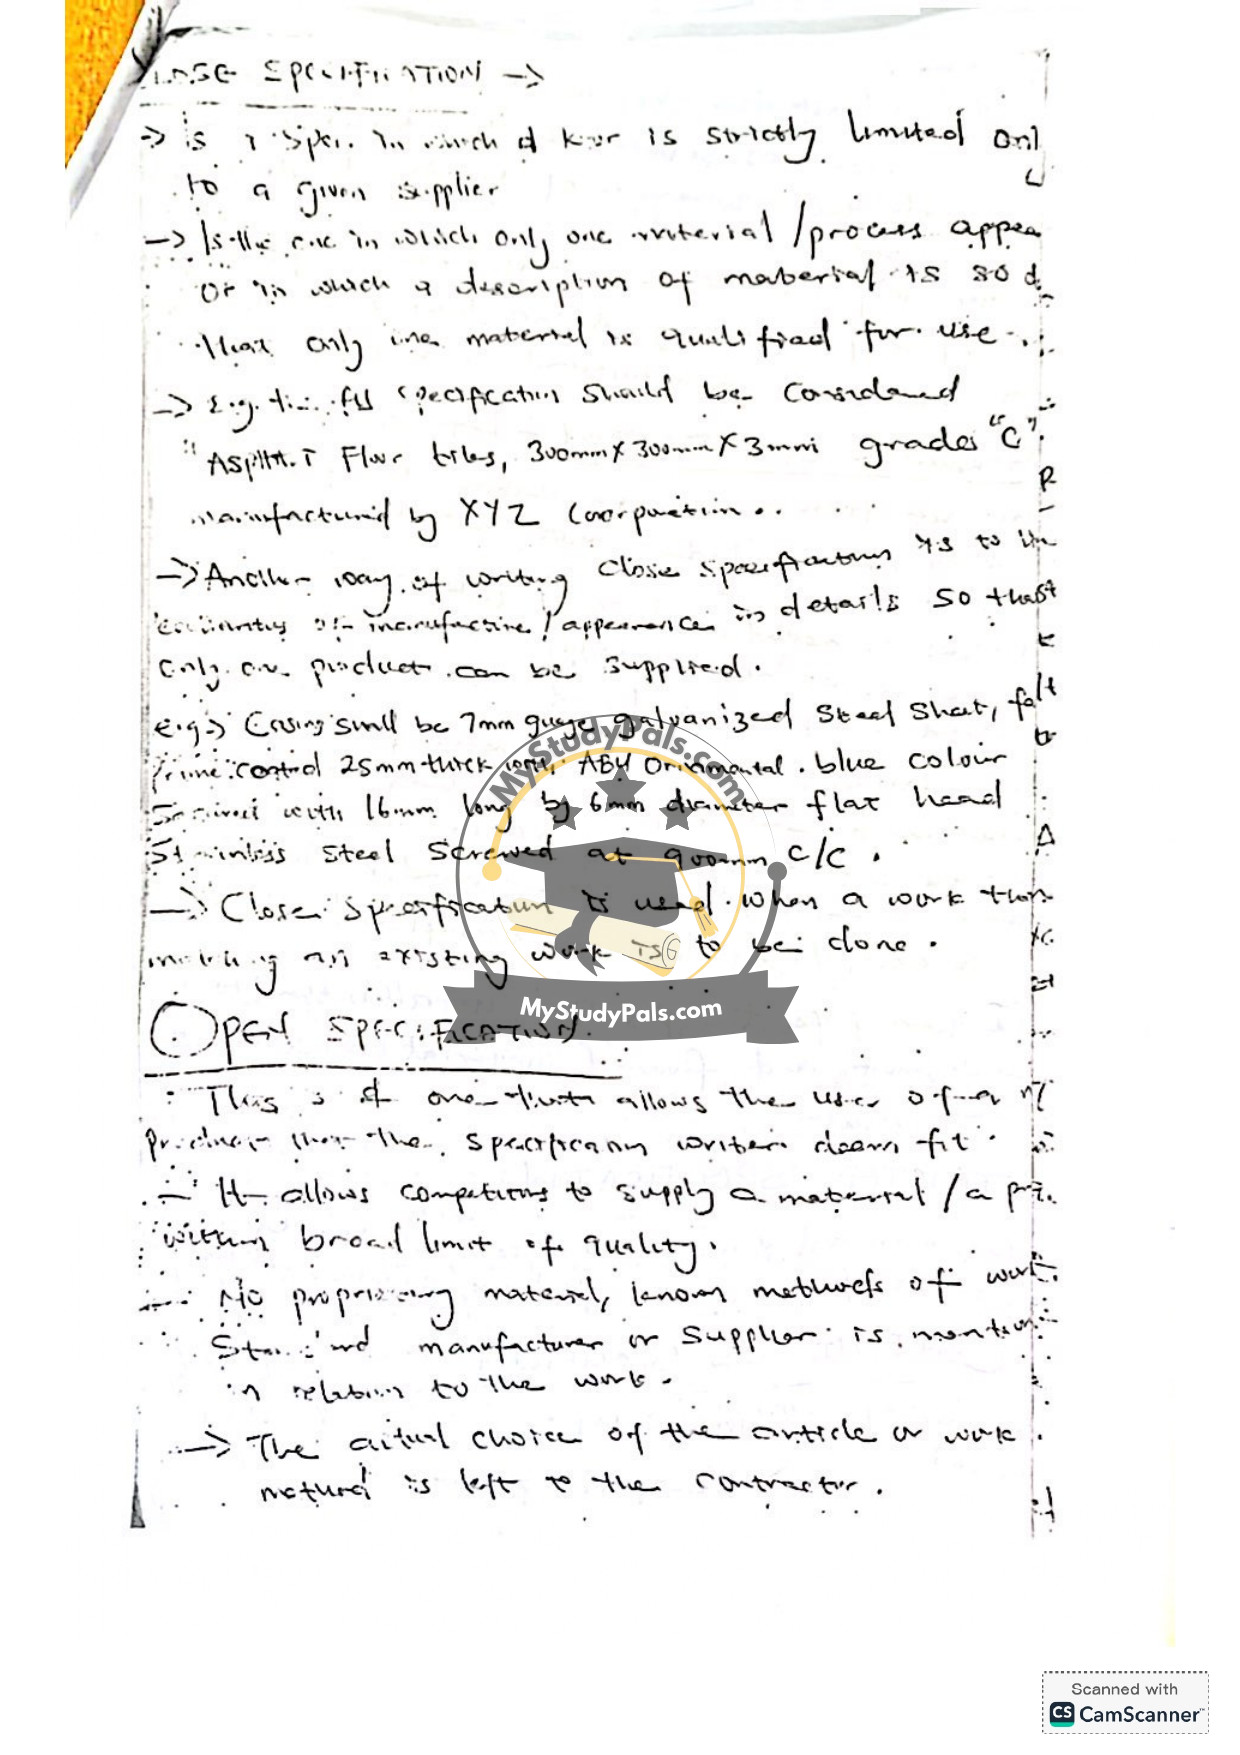 SPECIFICATION →
→ is a spec. in which is strictly limited only
to a given supplier
→ Is the one in which only one material / process appea
or in which a description of material is so d
that only one material is qualified for use.
→ E.g. the specification should be considered
"ASPHALT Floor tiles, 300mm X 300mm X 3mm grades "C".
manufactured by XYZ Corporation..
→ Another way of writing close specification is to
of manufacture / appearance in details so that
only one product can be supplied.
e.g → Casing shall be 7mm guage galvanized steel sheet, felt
control 25mm thick with ABU Ornamental. blue colour
with 16mm long by 6mm diameter flat head
Stainless steel screwed at 900mm c/c.
→ Close specification is used when a work
matching an existing work is to be done.
OPEN SPECIFICATION.
This is one that allows the use of
product that the specification writer deems fit.
- It allows competitions to supply a material / a
within broad limit of quality.
- No material, known methods of work.
Standard manufacturer or supplier is mention
in relation to the work.
→ The actual choice of the article or work
method is left to the contractor.
MyStudyPals.com
MyStudyPals.com
Scanned with
CS CamScanner